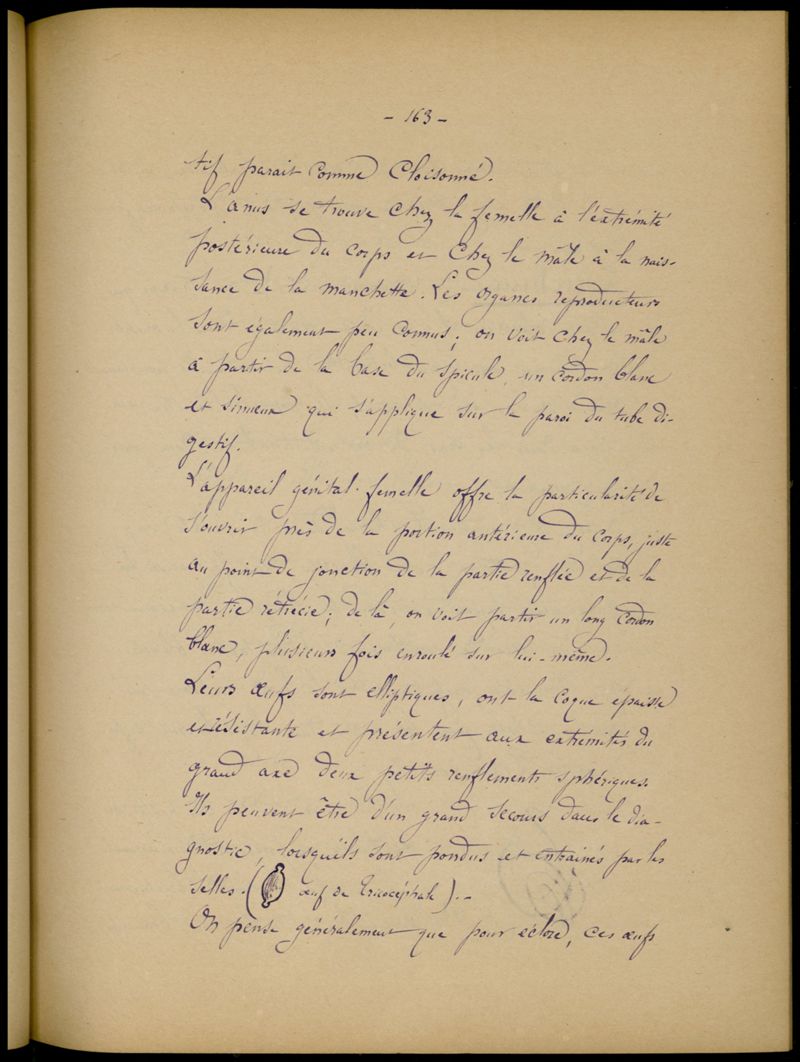 - 163 -
tif parait comme cloisonné.
L'anus se trouve chez la femelle à l'extrémité
postérieure du corps et chez le mâle à la nais-
sance de la manchette. Les organes reproducteurs
sont également peu connus; on voit chez le mâle
à partir de la base du spicule, un cordon blanc
et sinueux qui s'applique sur la paroi du tube di-
gestif.
L'appareil génital femelle offre la particularité de
s'ouvrir près de la portion antérieure du corps, juste
au point de jonction de la partie renflée et de la
partie rétrécie; de là, on voit partir un long cordon
blanc, plusieurs fois enroulé sur lui-même.
Leurs œufs sont elliptiques, ont la coque épaisse
et résistante et présentent aux extrémités du
grand axe deux petits renflements sphériques.
Ils peuvent être d'un grand secours dans le dia-
gnostic, lorsqu'ils sont pondus et entrainés par les
selles. ( œuf de Tricocéphale ). -
On pense généralement que pour éclore, ces œufs